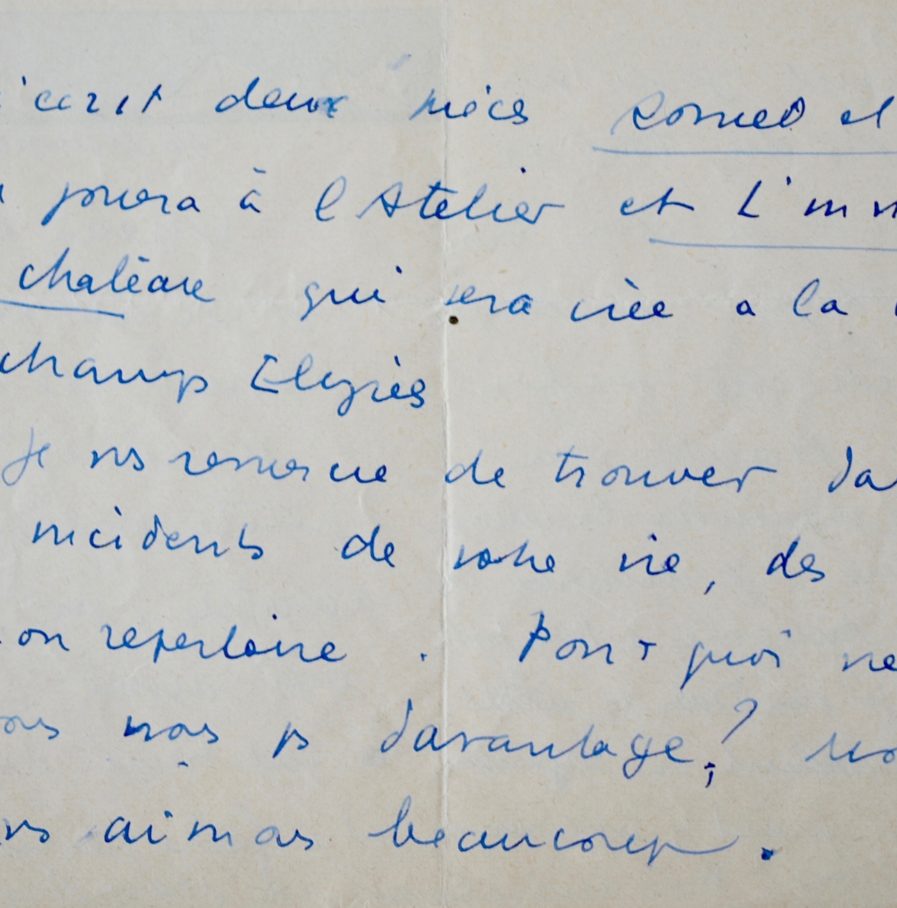 écrit deux pièces Roméo et
jouera à l'Atelier et L'inv
château qui sera créé a la
champs Elysées
Je vs remercie de trouver da
incidents de votre vie, des
on repertoire. Pourquoi ne
vous nous ps davantage? no
vs aimons beaucoup.